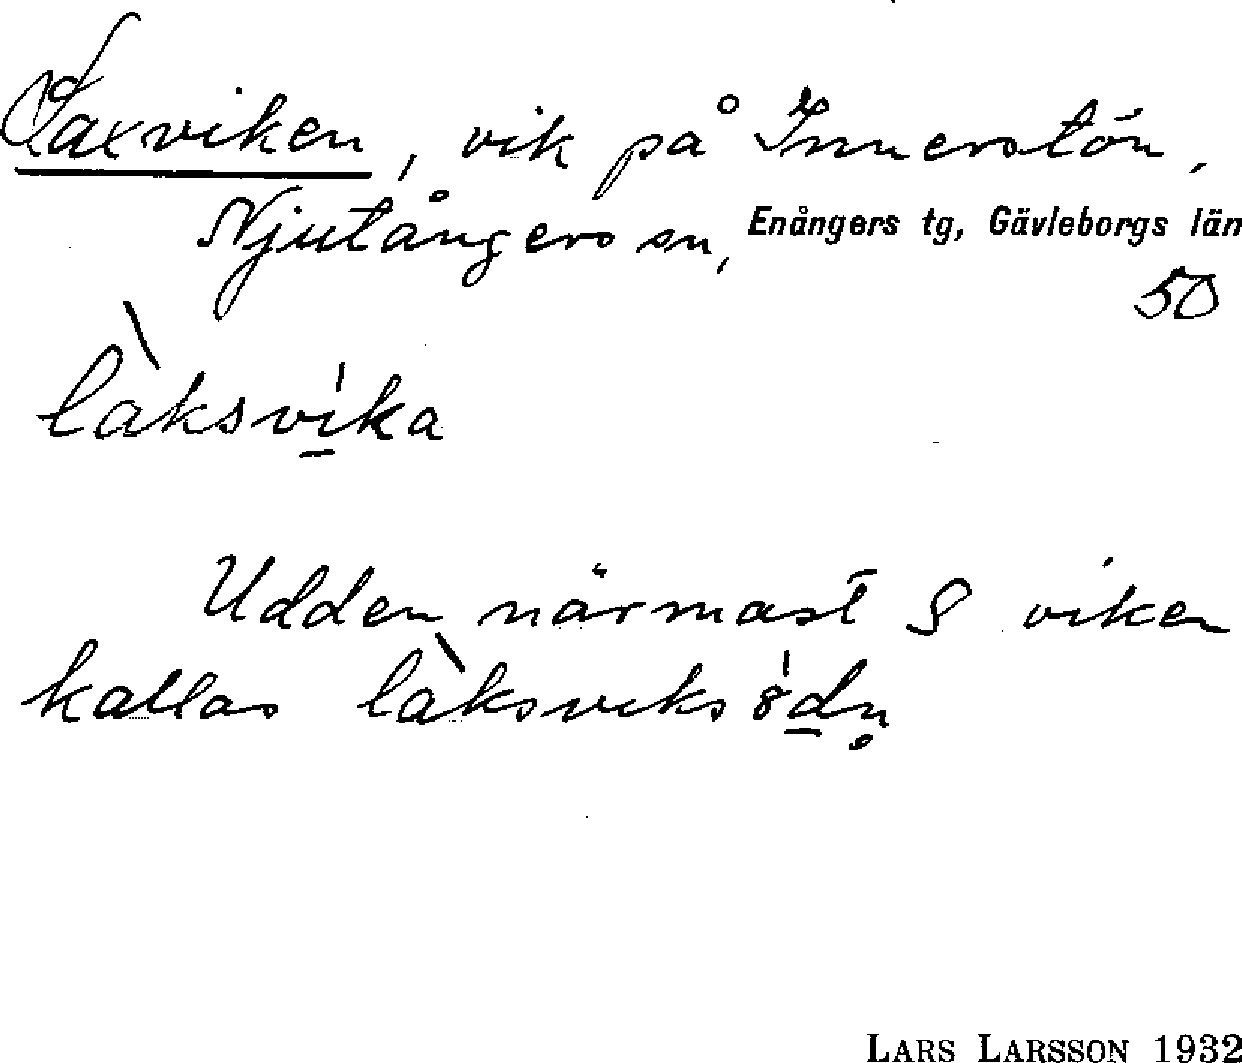 Laxviken, vik på Innerstön,
Njutångers sn, Enångers tg, Gävleborgs län
50
làksvi̲ka
Udden närmast S viken
kallas làksviks
LARS LARSSON 1932